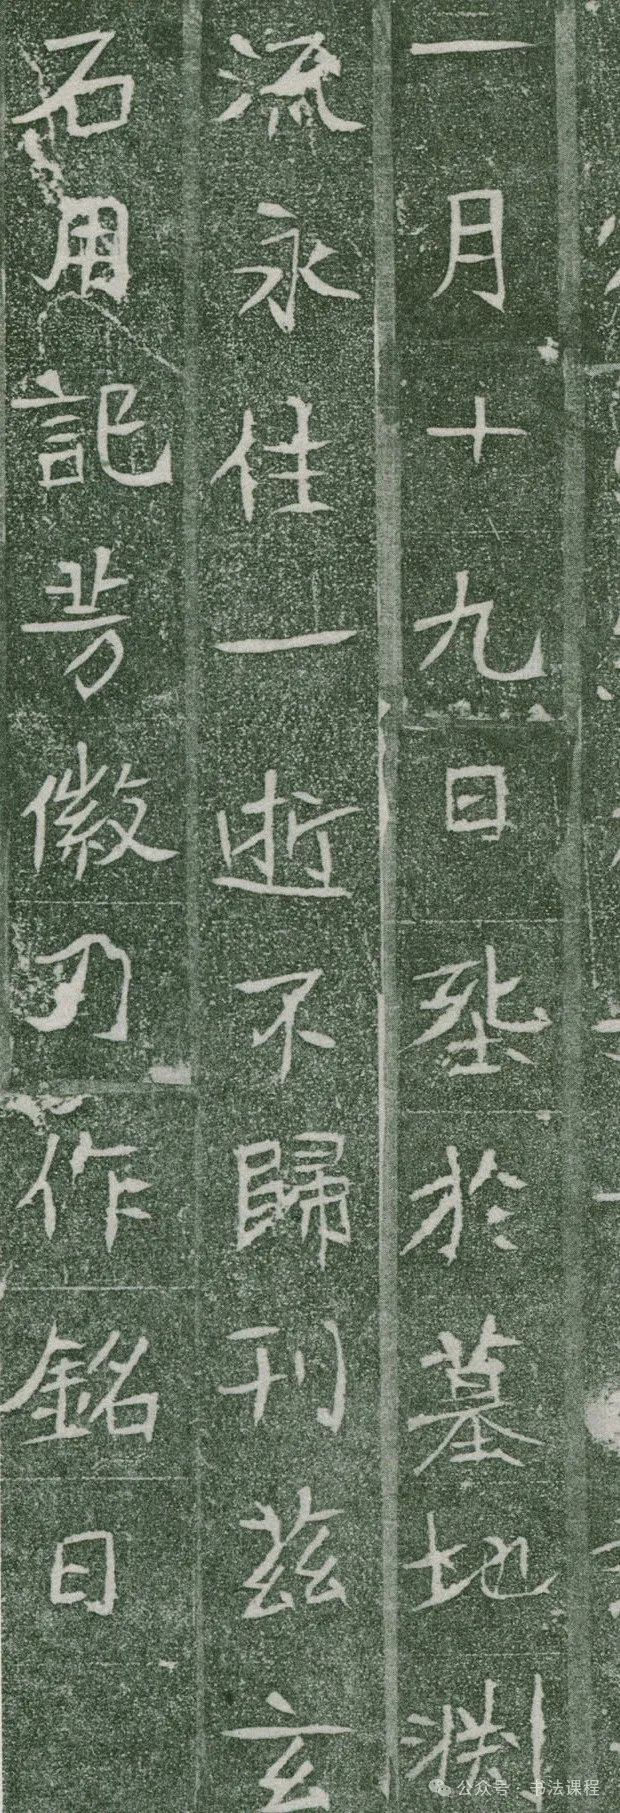 一月十九日塟於墓地渊
流永住一逝不歸刊茲玄
石用記芳徽乃作銘曰
公众号：书法课程